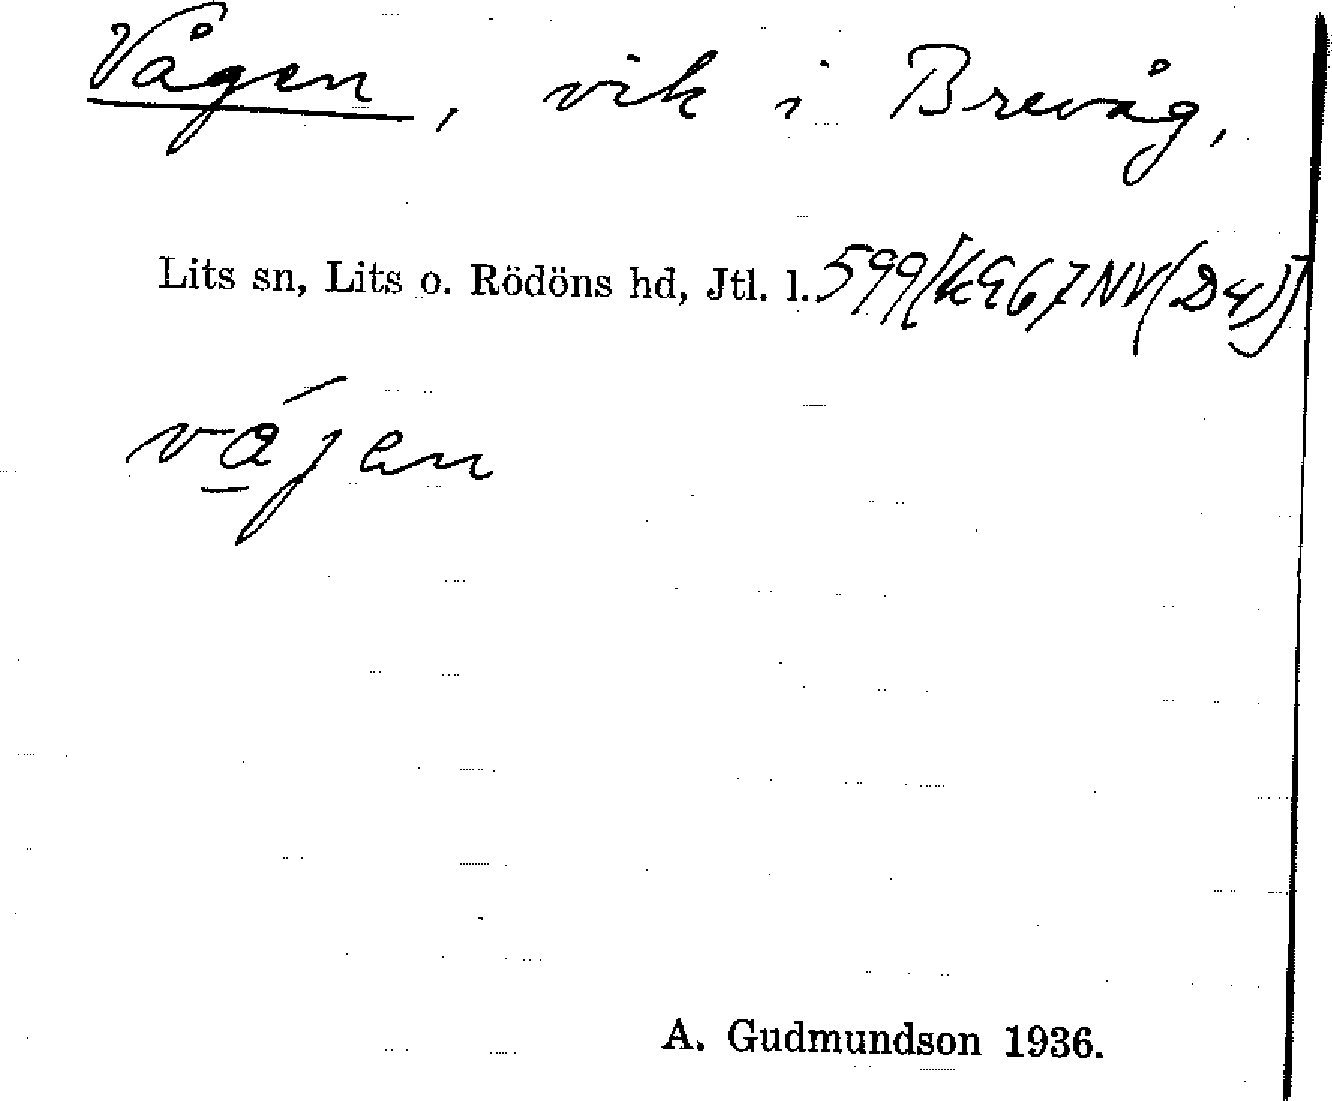 Vågen, vik i Brevåg,
Lits sn, Lits o. Rödöns hd, Jtl. l. 599/KG67NV(D4)
vájen
A. Gudmundson 1936.